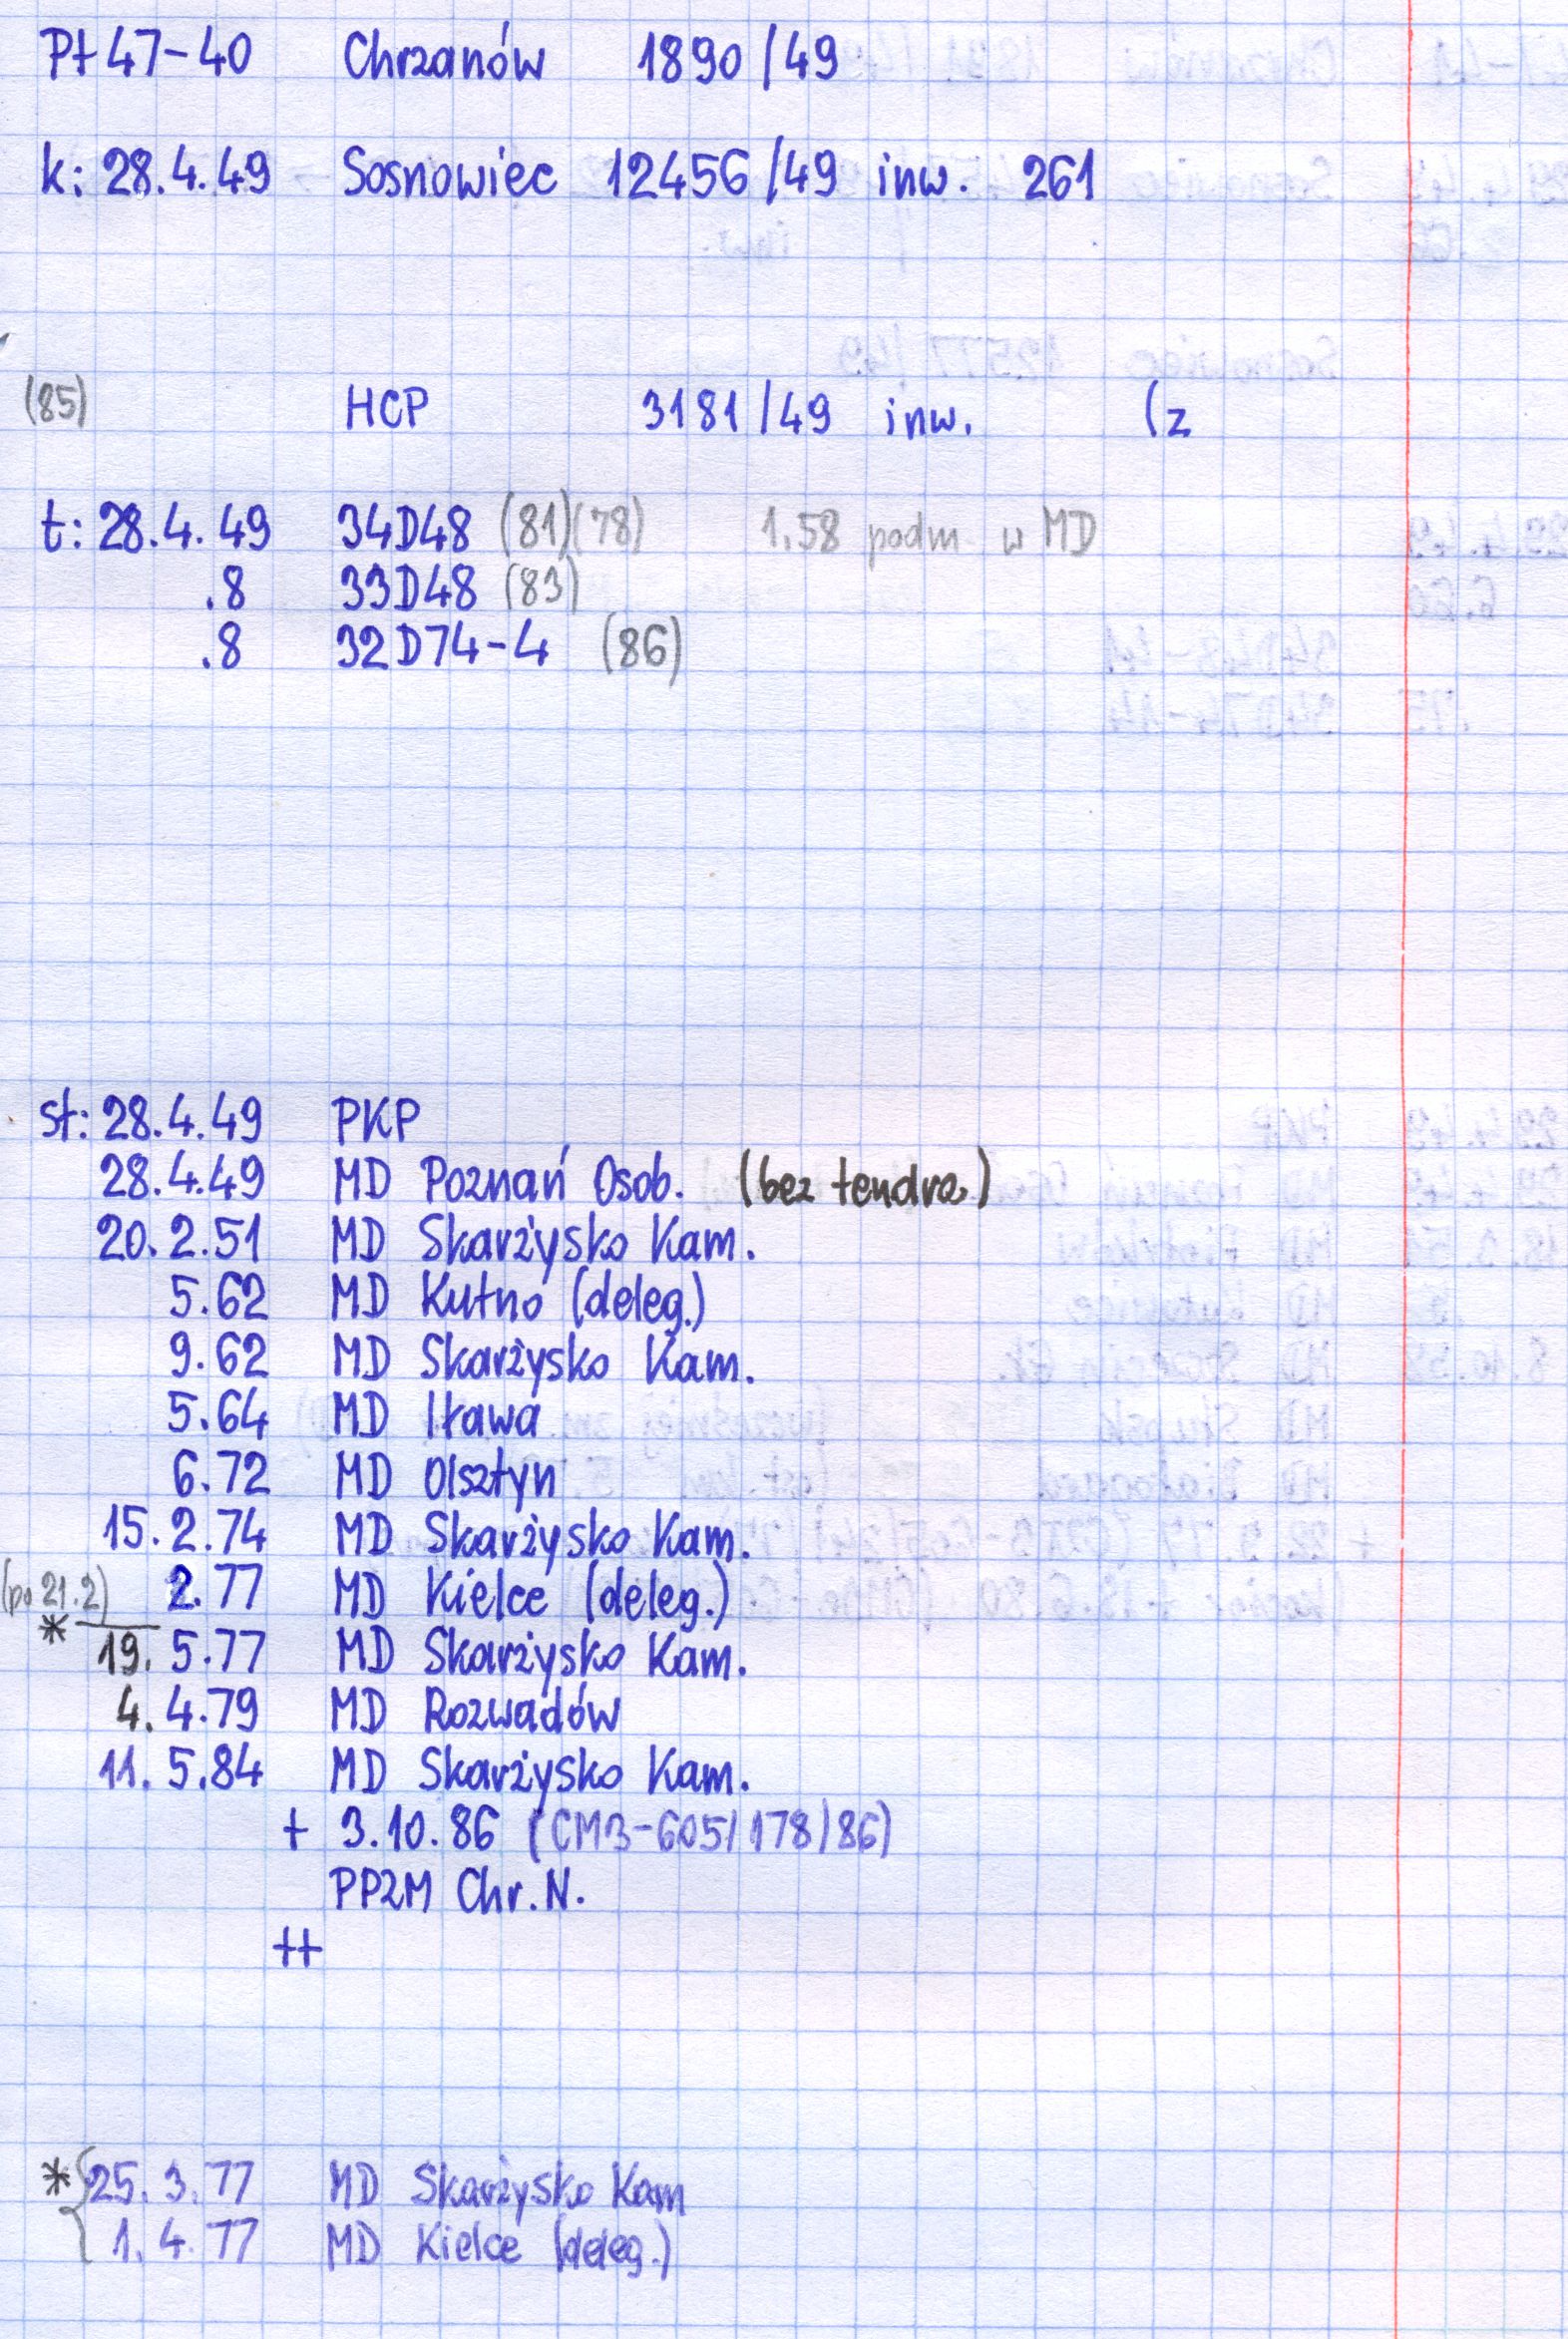 Pt47-40 Chrzanów 1890/49
k: 28.4.49 Sosnowiec 12456/49 inw. 261
(85) HCP 3181/49 inw. (z
t: 28.4.49 34D48 (81)(78) 1.58 podm w MD
.8 33D48 (83)
.8 32D74-4 (86)
st: 28.4.49 PKP
28.4.49 MD Poznań Osob. (bez tendra)
20.2.51 MD Skarżysko Kam.
5.62 MD Kutno (deleg.)
9.62 MD Skarżysko Kam.
5.64 MD Iława
6.72 MD Olsztyn
15.2.74 MD Skarżysko Kam.
(po 21.2) 2.77 MD Kielce (deleg.)
* 19.5.77 MD Skarżysko Kam.
4.4.79 MD Rozwadów
11.5.84 MD Skarżysko Kam.
+ 3.10.86 (CM3-605/178/86)
PPZM Chr.N.
++
* 25.3.77 MD Skarżysko Kam
1.4.77 MD Kielce (deleg.)